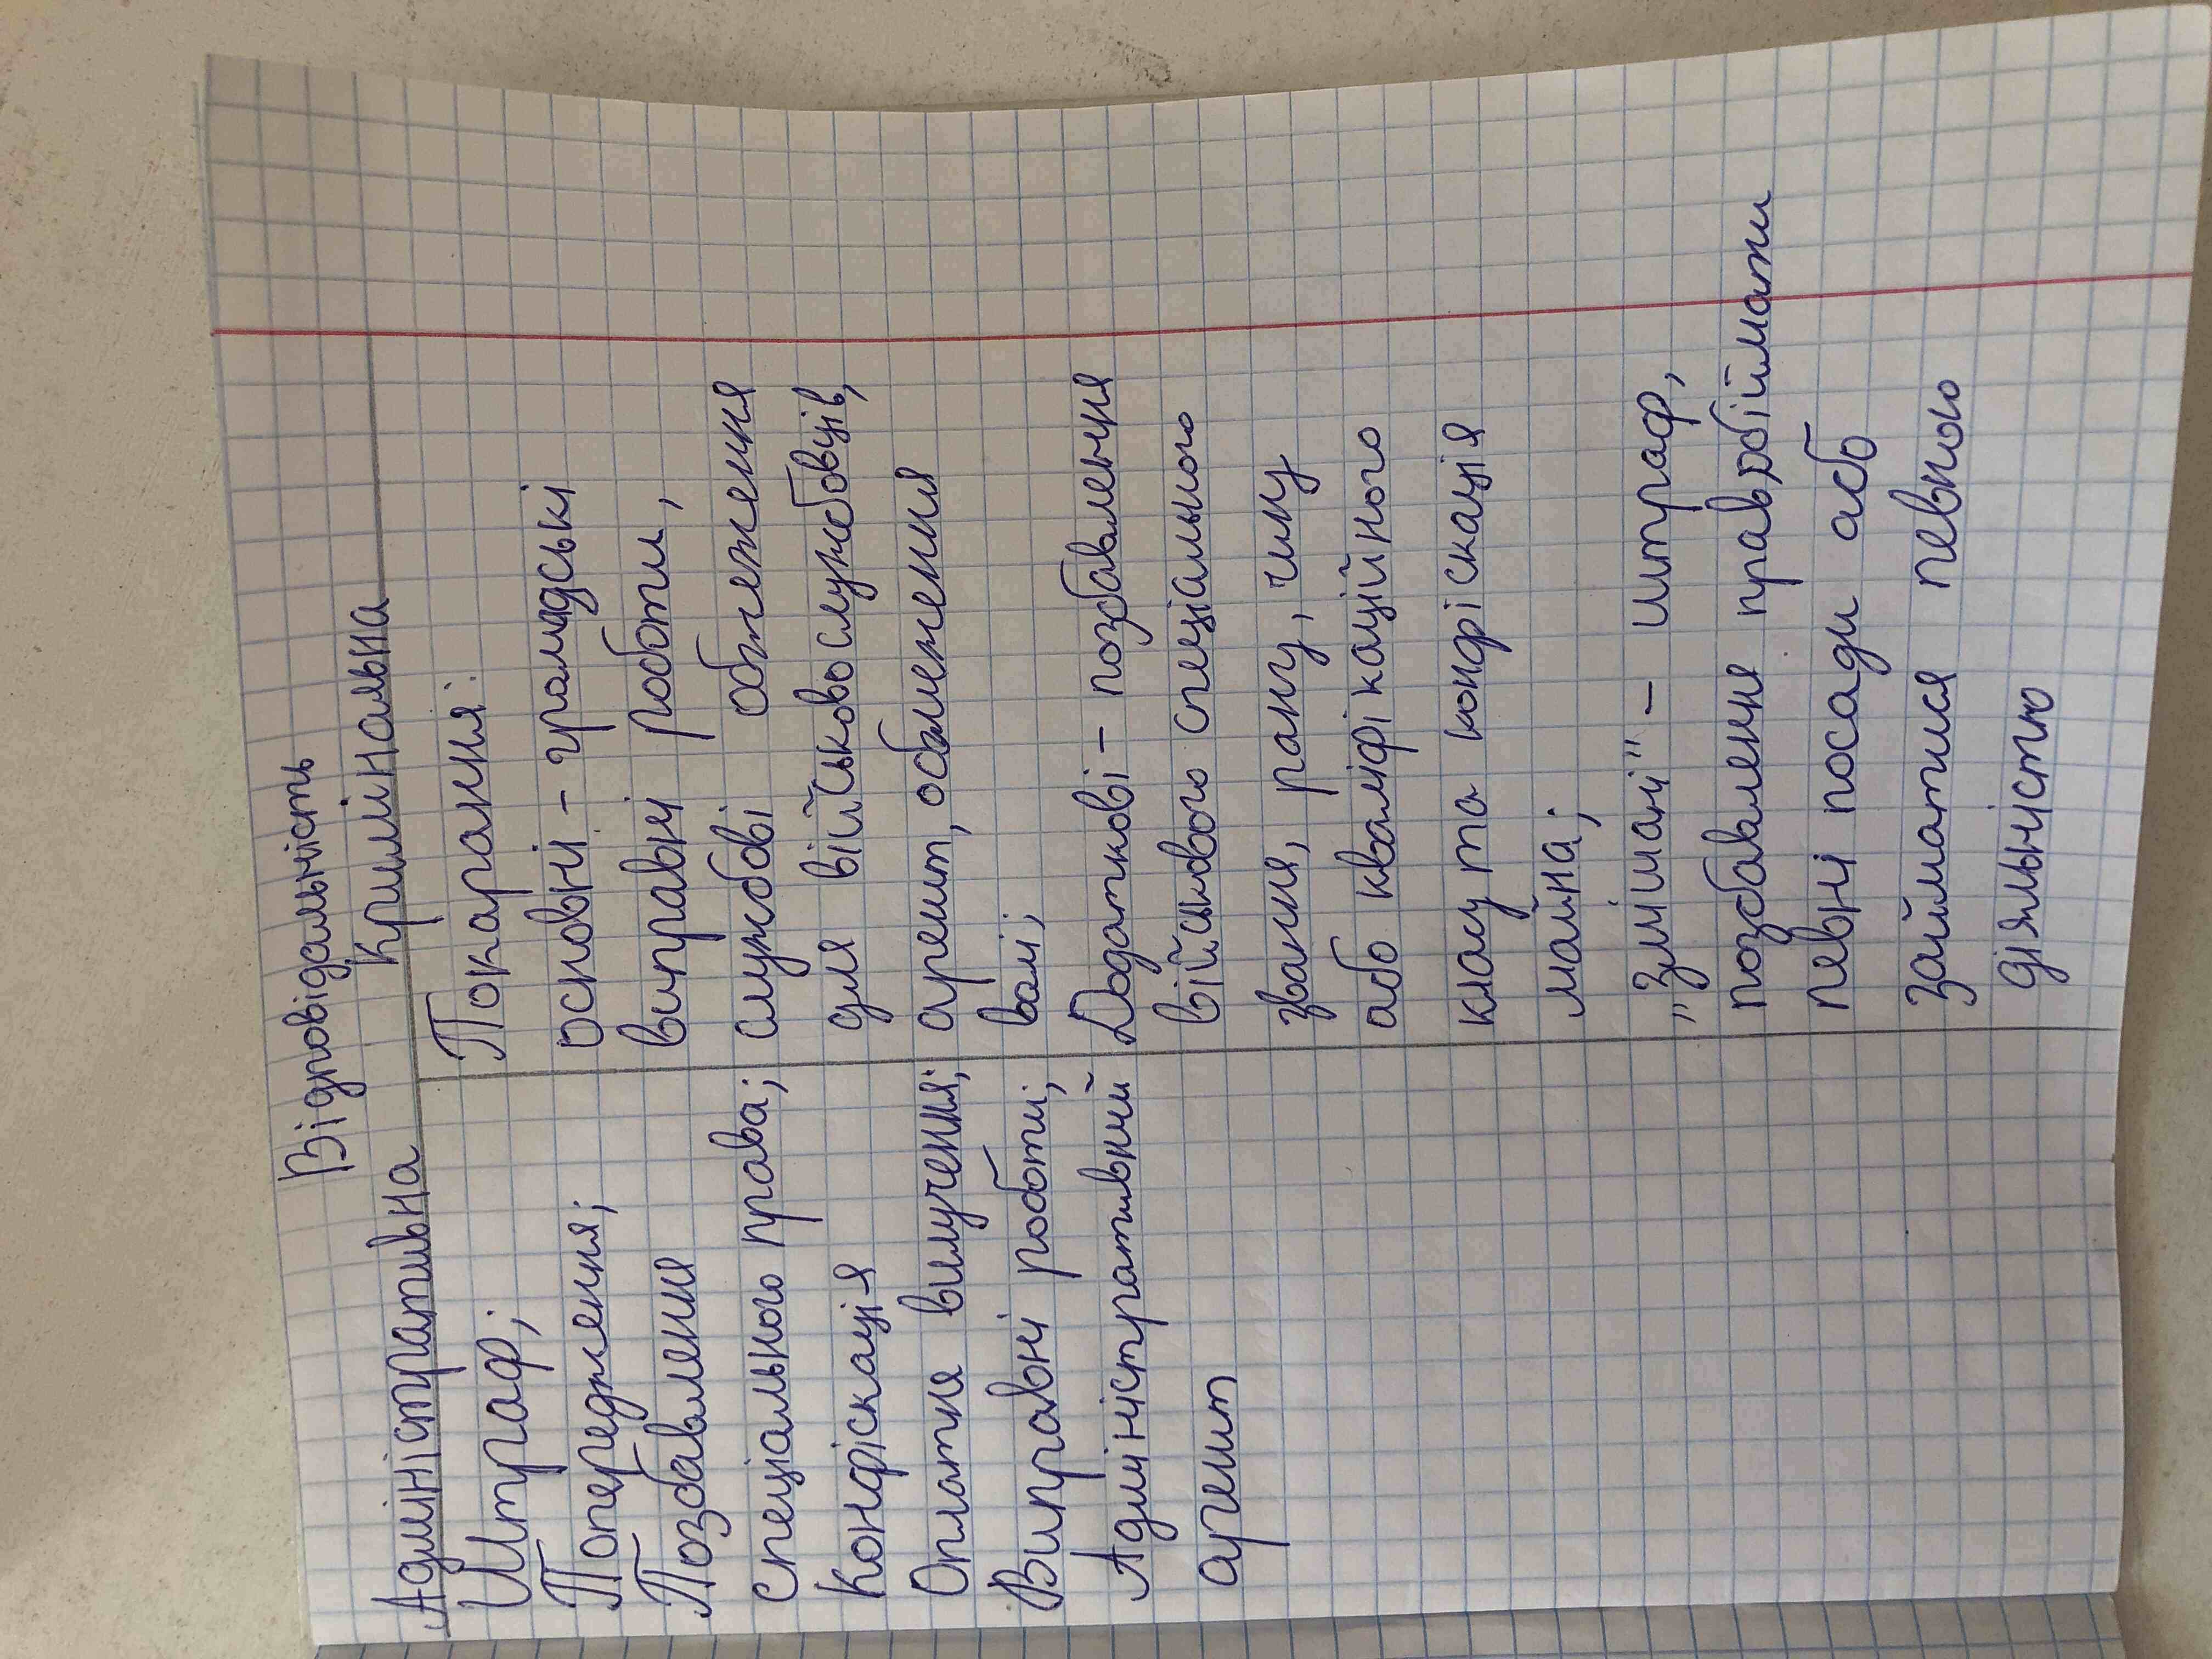 Відповідальність
Адміністративна
Штраф;
Попередження;
Позбавлення
спеціального права;
Конфіскація
Оплатне вилучення;
Виправні роботи;
Адміністративний
арешт
Кримінальна
Покарання:
основні - громадські
виправні роботи,
службові обмеження
для військовослужбовців,
арешт, обмеження
волі;
Додаткові - позбавлення
військового спеціального
звання, рангу, чину
або кваліфікаційного
класу та конфіскація
майна;
„Змішані" - штраф,
позбавлення права обіймати
певні посади або
займатися певною
діяльністю